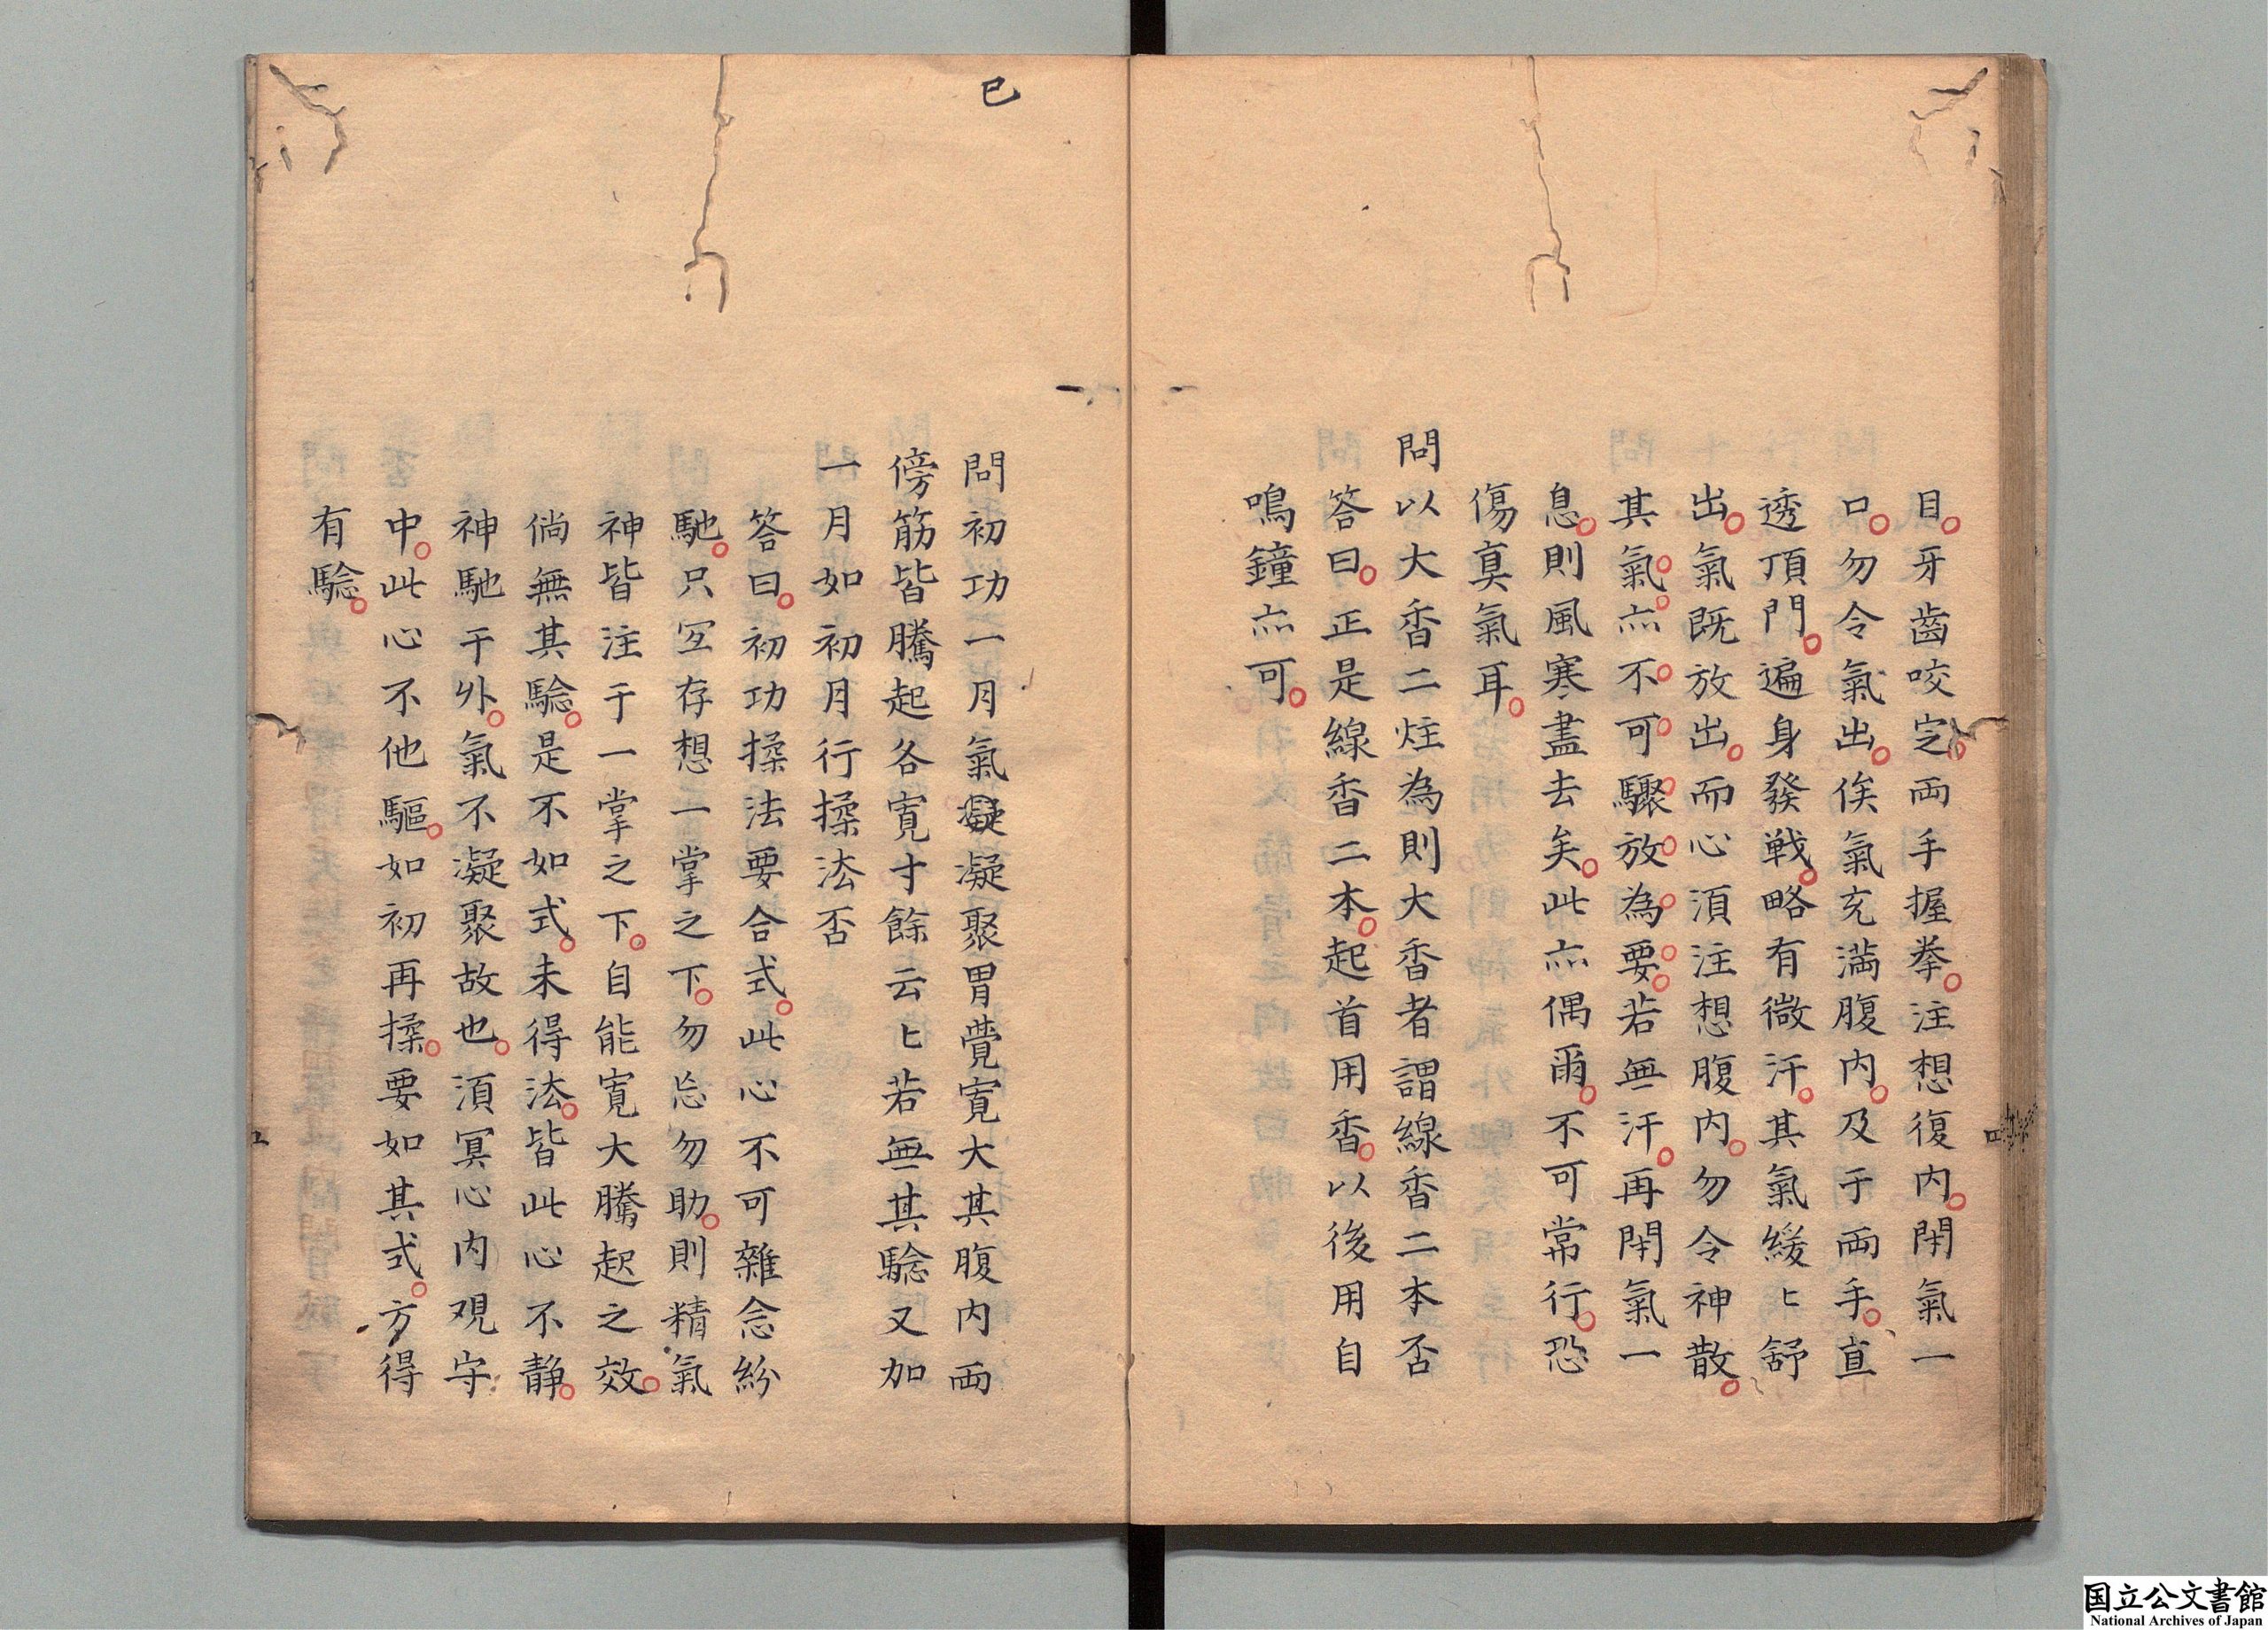 目。牙齒咬定。両手握拳。注想復内。閉氣一
口。勿令氣出。俟氣充満腹内。及于両手。直
透頂門。遍身發戦。略有微汗。其氣緩〻舒
出。氣既放出。而心須注想腹内。勿令神散。
其氣亦不可驟放為要。若無汗。再閉氣一
息。則風寒盡去矣。此亦偶爾。不可常行。恐
傷真氣耳。
問以大香二炷為則大香者謂線香二本否
答曰。正是線香二本。起首用香。以後用自
鳴鐘亦可。
已
問初功一月氣凝凝聚胃覺寛大其腹内両
傍筋皆騰起各寛寸餘云〻若無其騐又加
一月如初月行揉法否
答曰。初功揉法要合式。此心不可雜念紛
馳。只冝存想一掌之下。勿忘勿助。則精氣
神皆注于一掌之下。自能寛大騰起之效。
倘無其騐。是不如式。未得法。皆此心不静。
神馳于外。氣不凝聚故也。須冥心内观守
中。此心不他驅。如初再揉。要如其式。方得
有騐。
国立公文書館
National Archives of Japan